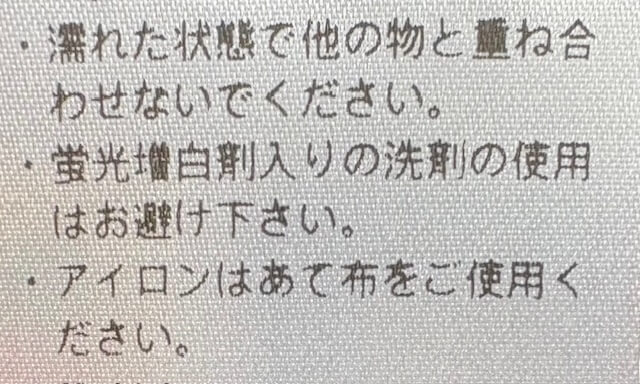 ・濡れた状態で他の物と重ね合
わせないでください。
・蛍光増白剤入りの洗剤の使用
はお避け下さい。
・アイロンはあて布をご使用く
ださい。